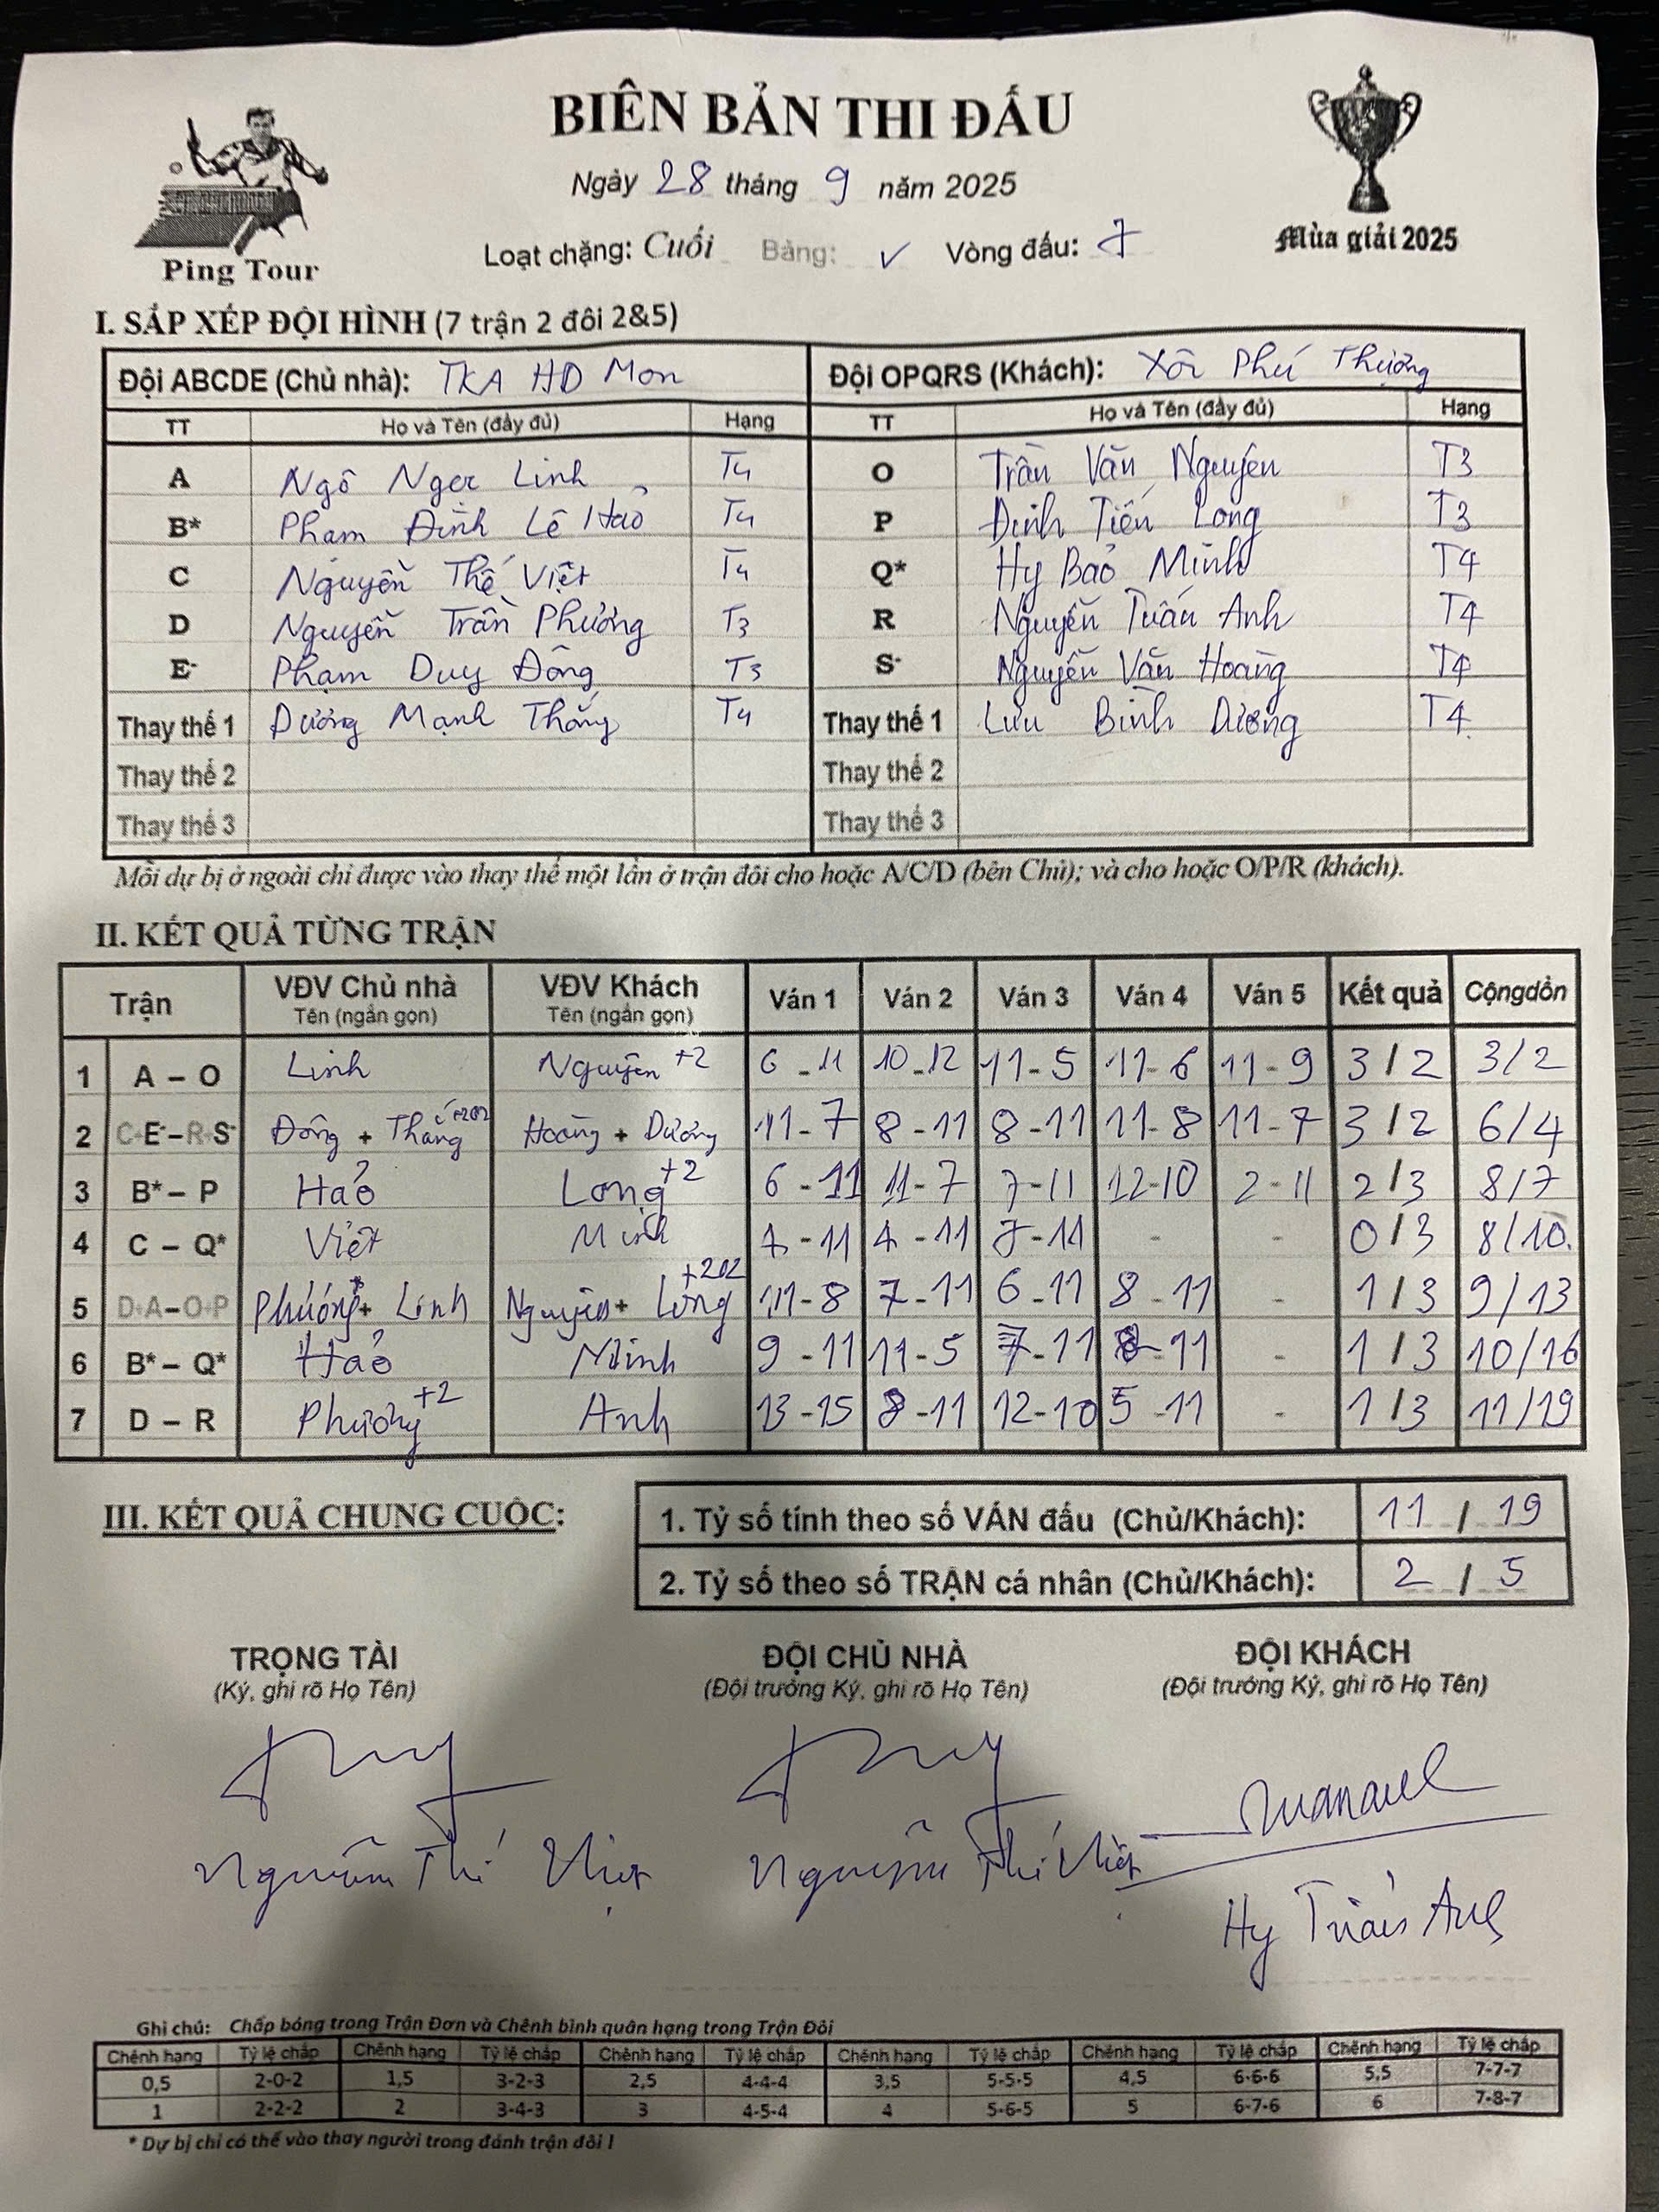 BIÊN BẢN THI ĐẤU
Ngày 28 tháng 9 năm 2025
Loạt chặng: Cuối Bảng: ✓ Vòng đấu: 7
Ping Tour
Mùa giải 2025
I. SẮP XẾP ĐỘI HÌNH (7 trận 2 đôi 2&5)
Đội ABCDE (Chủ nhà): TKA HD Mon Đội OPQRS (Khách): Xôi Phú Thượng
TT Họ và Tên (đầy đủ) Hạng TT Họ và Tên (đầy đủ) Hạng
A Ngô Ngọc Linh T4 O Trần Văn Nguyên T3
B* Phạm Đình Lê Hảo T4 P Đinh Tiến Long T3
C Nguyễn Thế Việt T4 Q* Hy Bảo Minh T4
D Nguyễn Trần Phương T3 R Nguyễn Tuấn Anh T4
E- Phạm Duy Đông T3 S- Nguyễn Văn Hoàng T4
Thay thế 1 Dương Mạnh Thắng T4 Thay thế 1 Lưu Bình Dương T4
Thay thế 2 Thay thế 2
Thay thế 3 Thay thế 3
Mỗi dự bị ở ngoài chỉ được vào thay thế một lần ở trận đôi cho hoặc A/C/D (bên Chủ); và cho hoặc O/P/R (khách).
II. KẾT QUẢ TỪNG TRẬN
Trận VĐV Chủ nhà Tên (ngắn gọn) VĐV Khách Tên (ngắn gọn) Ván 1 Ván 2 Ván 3 Ván 4 Ván 5 Kết quả Cộngdồn
1 A – O Linh Nguyên +2 6 - 11 10 - 12 11 - 5 11 - 6 11 - 9 3 / 2 3/2
2 C+E-–R+S- Đông + Thắng +202 Hoàng + Dương 11 - 7 8 - 11 8 - 11 11 - 8 11 - 7 3 / 2 6/4
3 B* – P Hảo Long +2 6 - 11 11 - 7 7 - 11 12 - 10 2 - 11 2 / 3 8/7
4 C – Q* Việt Minh 7 - 11 4 - 11 7 - 11 - - 0 / 3 8/10.
5 D+A–O+P Phương + Linh Nguyên + Long +202 11 - 8 7 - 11 6 - 11 8 - 11 - 1 / 3 9/13
6 B* – Q* Hảo Minh 9 - 11 11 - 5 7 - 11 8 - 11 - 1 / 3 10/16
7 D – R Phương +2 Anh 13 - 15 8 - 11 12 - 10 5 - 11 - 1 / 3 11/19
III. KẾT QUẢ CHUNG CUỘC:
1. Tỷ số tính theo số VÁN đấu (Chủ/Khách): 11 / 19
2. Tỷ số theo số TRẬN cá nhân (Chủ/Khách): 2 / 5
TRỌNG TÀI ĐỘI CHỦ NHÀ ĐỘI KHÁCH
(Ký, ghi rõ Họ Tên) (Đội trưởng Ký, ghi rõ Họ Tên) (Đội trưởng Ký, ghi rõ Họ Tên)
Nguyễn Thế Việt Nguyễn Thế Việt
Hy Tuấn Anh
Ghi chú: Chấp bóng trong Trận Đơn và Chênh bình quân hạng trong Trận Đôi
Chênh hạng Tỷ lệ chấp Chênh hạng Tỷ lệ chấp Chênh hạng Tỷ lệ chấp Chênh hạng Tỷ lệ chấp Chênh hạng Tỷ lệ chấp Chênh hạng Tỷ lệ chấp
0,5 2-0-2 1,5 3-2-3 2,5 4-4-4 3,5 5-5-5 4,5 6-6-6 5,5 7-7-7
1 2-2-2 2 3-4-3 3 4-5-4 4 5-6-5 5 6-7-6 6 7-8-7
* Dự bị chỉ có thể vào thay người trong đánh trận đôi !